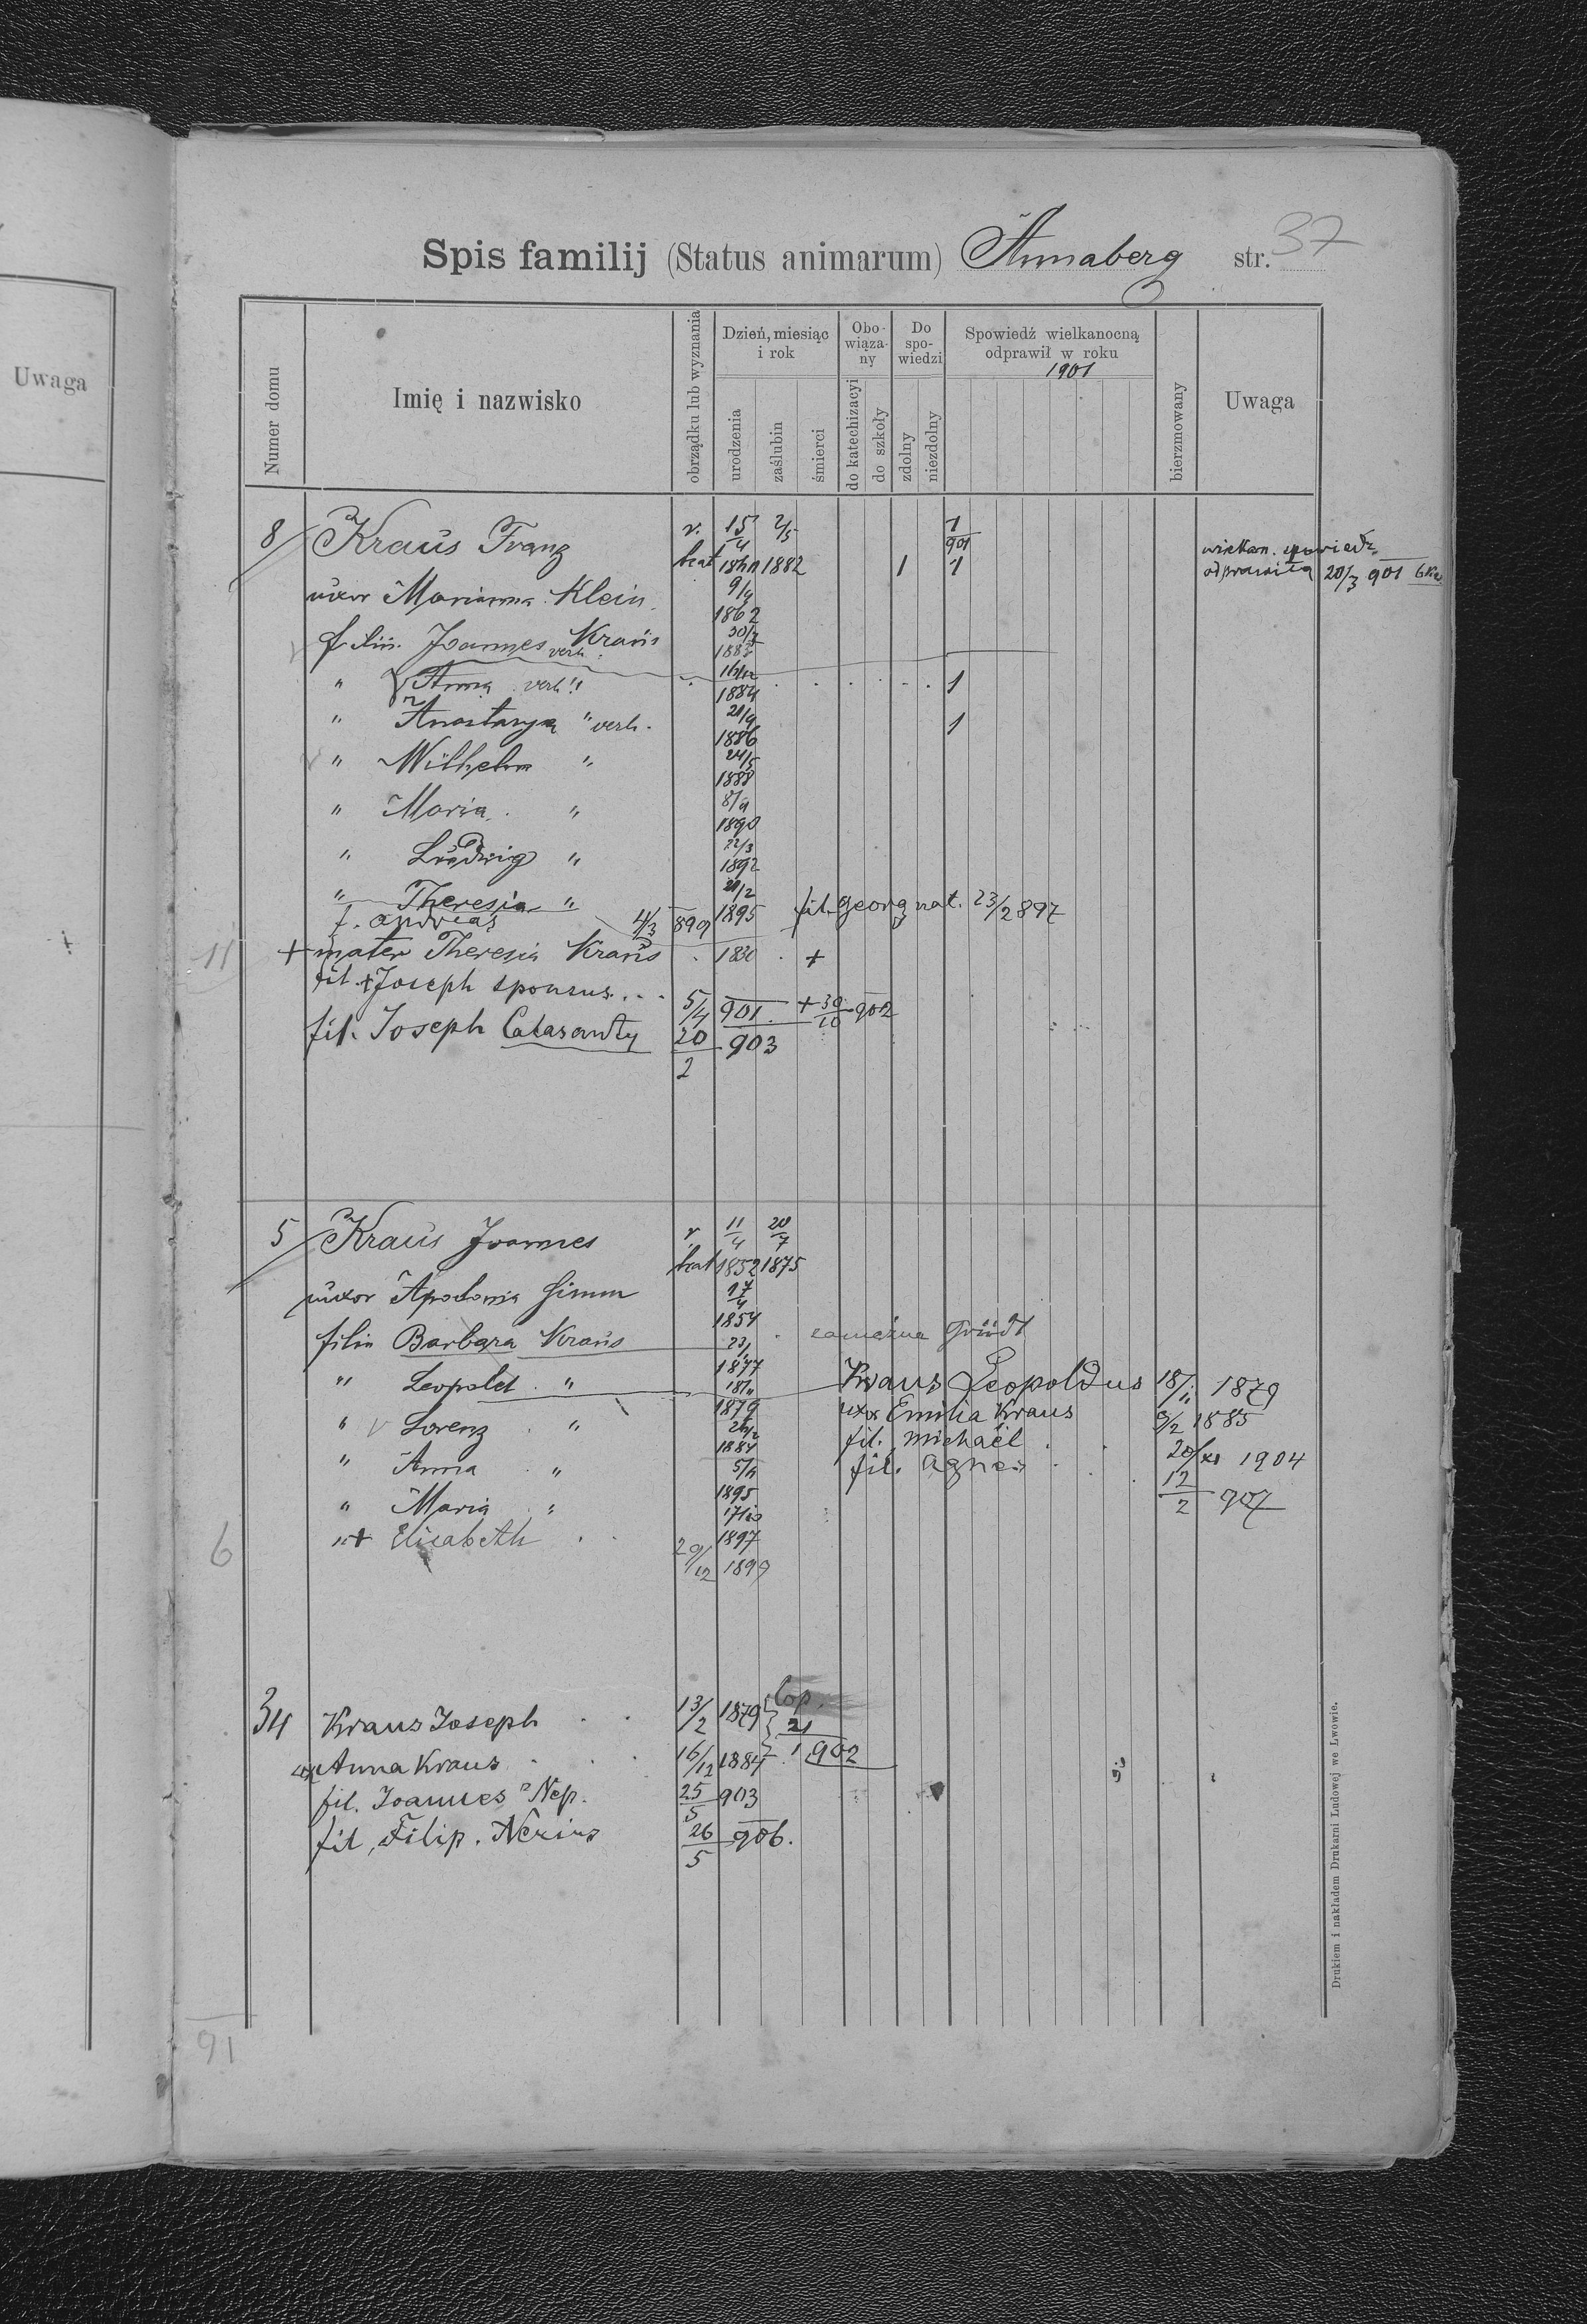 Uwaga
Spis familij (Status animarum) Annaberg str. 37
Numer domu
Imię i nazwisko
obrządku lub wyznania
Dzień, miesiąc i rok
urodzenia
zaślubin
śmierci
Obo-wiąza-ny
do katechizacyi
do szkoły
Do spo-wiedzi
zdolny
niezdolny
Spowiedź wielkanocną odprawił w roku
1901
bierzmowany
Uwaga
8 Kraus Franz r. 15/4 2/5 1/901
1882 1 1
wielkan. spowiedź
odprawiła 20/3 901
uxor Marianna Klein 9/4 1862
filii. Joannes Kraus verh. 30/3 1883
" Anna verh. " 16/12 1884 1
" Anastasya " verh. 21/9 1886 1
" Wilhelm " 24/5 1888
" Maria " 8/9 1890
" Ludwig " 22/3 1892
" Theresia " 21/2 1895 fil. Georg nat. 23/2 897
f. Andreas 4/3 899
11 + mater Theresia Kraus 1830 +
fil. + Joseph sponsus 5/4 901 + 30/10 902
fil. Joseph Calasanty 20/2 903
5 Kraus Joannes r. 11/4 20/7
1852 1875
uxor Apolonia Simm 17/4 1854
filia Barbara Kraus 23/1 1877 zamężna
" Leopold " 18/11 1879 Kraus Leopoldus 18/11 1879
" Lorenz " 1884 uxor Emilia Kraus 9/2 1885
" Anna " 1895 fil. Michaël 20/XI 1904
" Maria " 17/10 1897 fil. Agnes 12/2 907
6 "+ Elisabeth 29/12 1899
34 Kraus Joseph 13/2 1879 Cop. 21/1 902
ux Anna Kraus 16/12 1884
fil. Joannes Nep. 25/5 903
fil. Filip. Nerius 26/5 906.
91
Drukiem i nakładem Drukarni Ludowej we Lwowie.